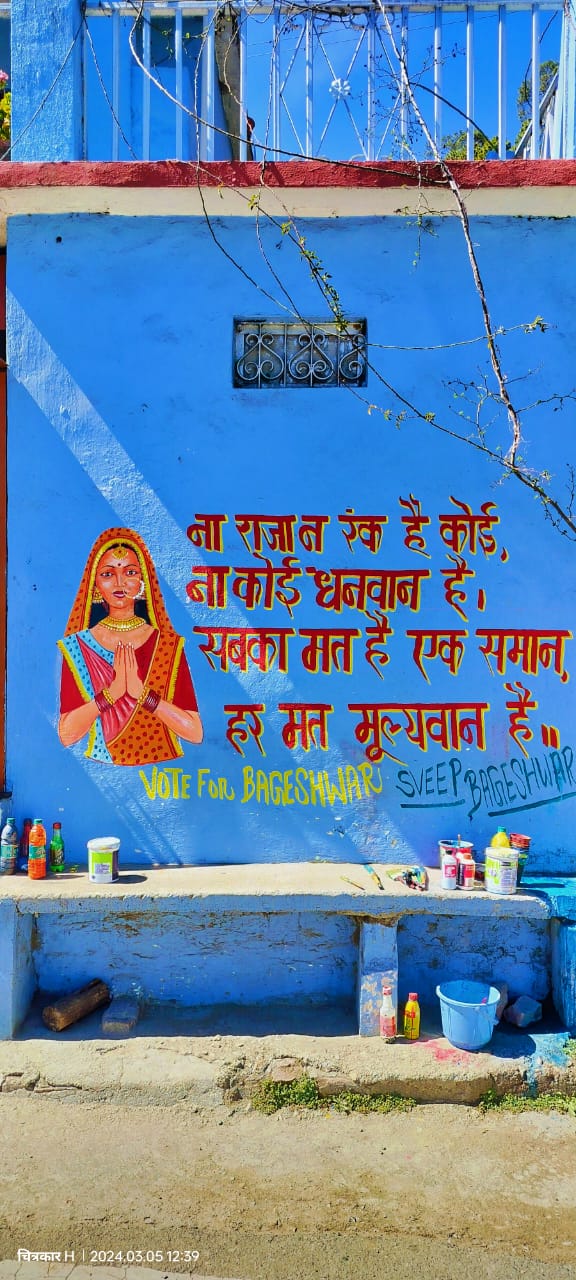 ना राजा न रंक है कोई,
ना कोई धनवान है।
सबका मत है एक समान,
हर मत मूल्यवान है॥
VOTE FOR BAGESHWAR
SVEEP BAGESHWAR
चित्रकार H | 2024.03.05 12:39